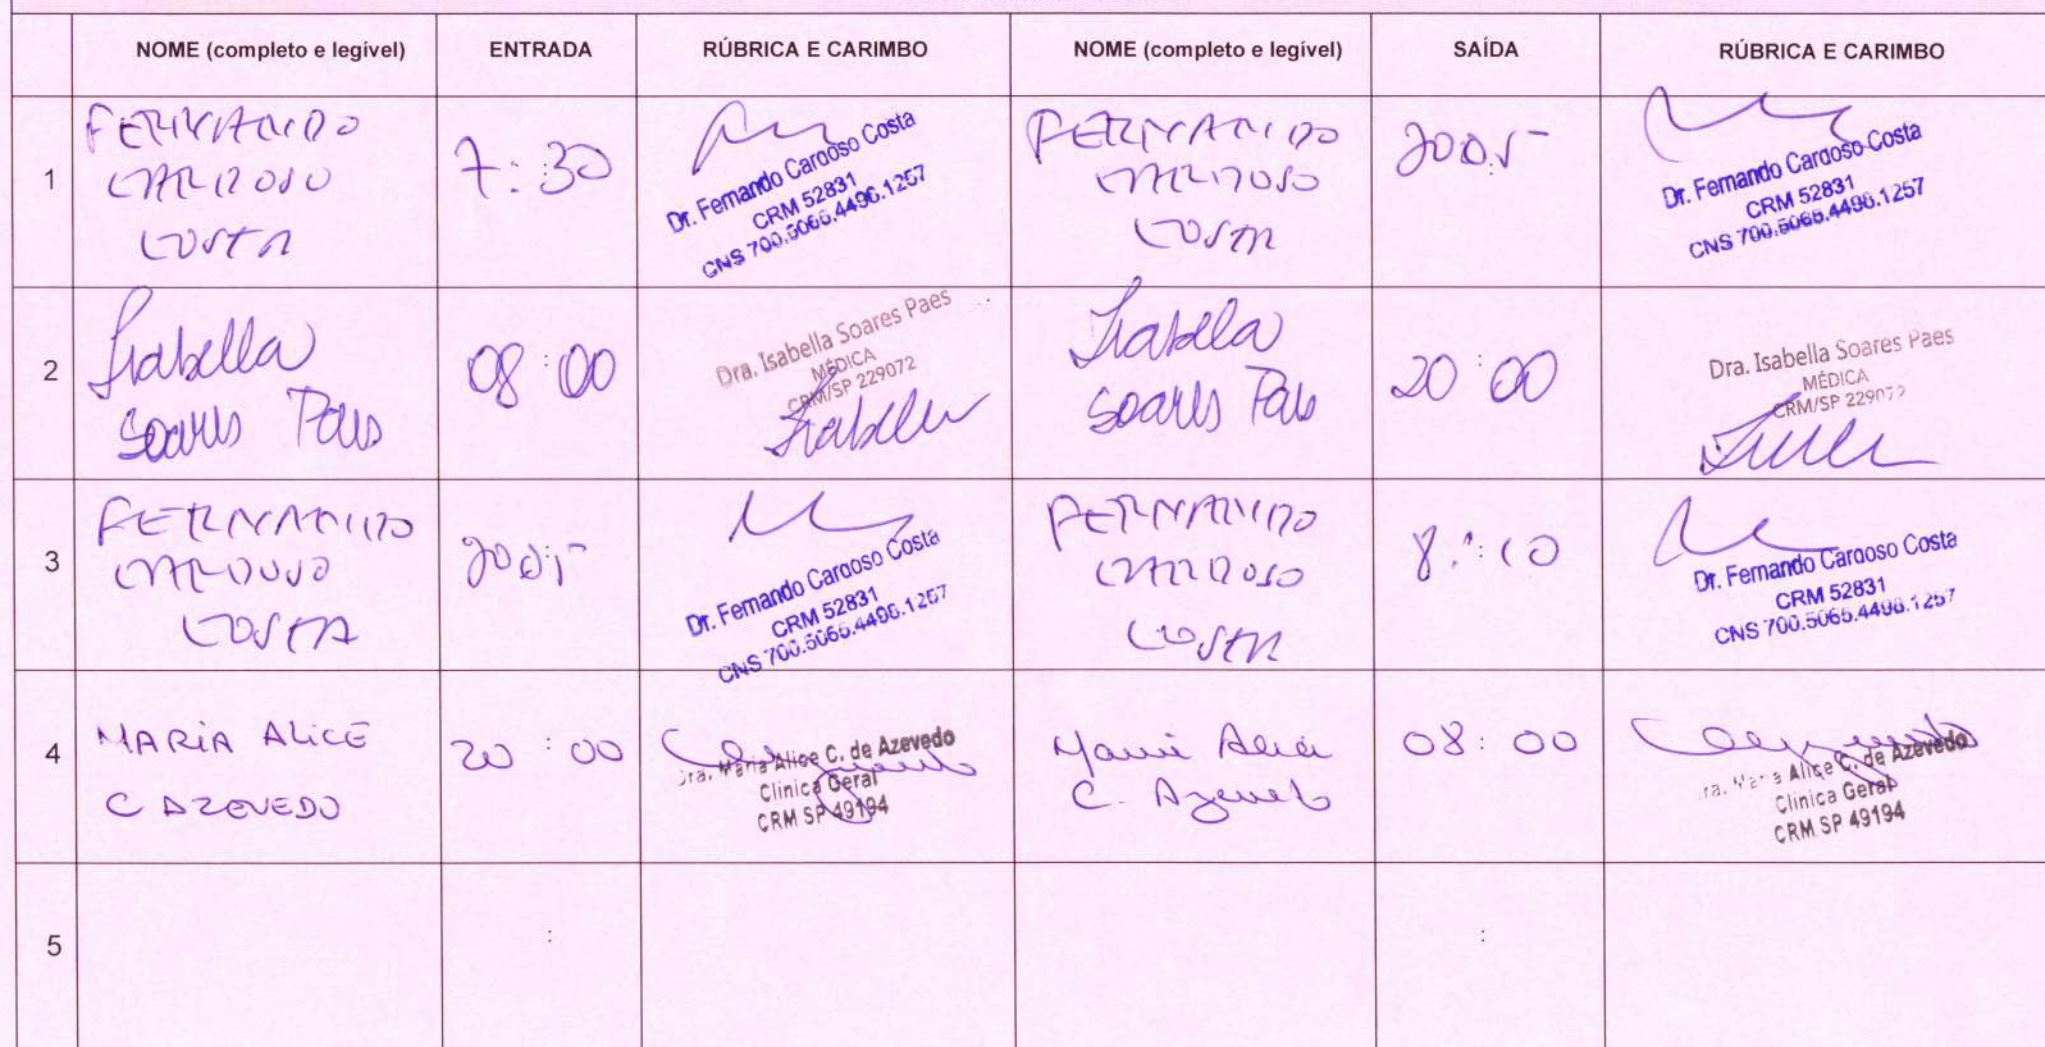 NOME (completo e legível) ENTRADA RÚBRICA E CARIMBO NOME (completo e legível) SAÍDA RÚBRICA E CARIMBO
1
FERNANDO
CARDOSO
COSTA
7:30
Dr. Fernando Cardoso Costa
CRM 52831
CNS 700.5066.4496.1257
FERNANDO
CARDOSO
COSTA
2005
Dr. Fernando Cardoso Costa
CRM 52831
CNS 700.5066.4496.1257
2
Isabella
Soares Paes
08:00
Dra. Isabella Soares Paes
MÉDICA
CRM/SP 229072
Isabella
Isabella
Soares Paes
20:00
Dra. Isabella Soares Paes
MÉDICA
CRM/SP 229072
3
FERNANDO
CARDOSO
COSTA
Dr. Fernando Cardoso Costa
CRM 52831
CNS 700.5066.4496.1257
FERNANDO
CARDOSO
COSTA
8:10
Dr. Fernando Cardoso Costa
CRM 52831
CNS 700.5065.4496.1257
4
MARIA ALICE
C AZEVEDO
20:00
Dra. Maria Alice C. de Azevedo
Clinica Geral
CRM SP 49194
Maria Alice
C. Azevedo
08:00
Dra. Maria Alice C. de Azevedo
Clinica Geral
CRM SP 49194
5
:
: